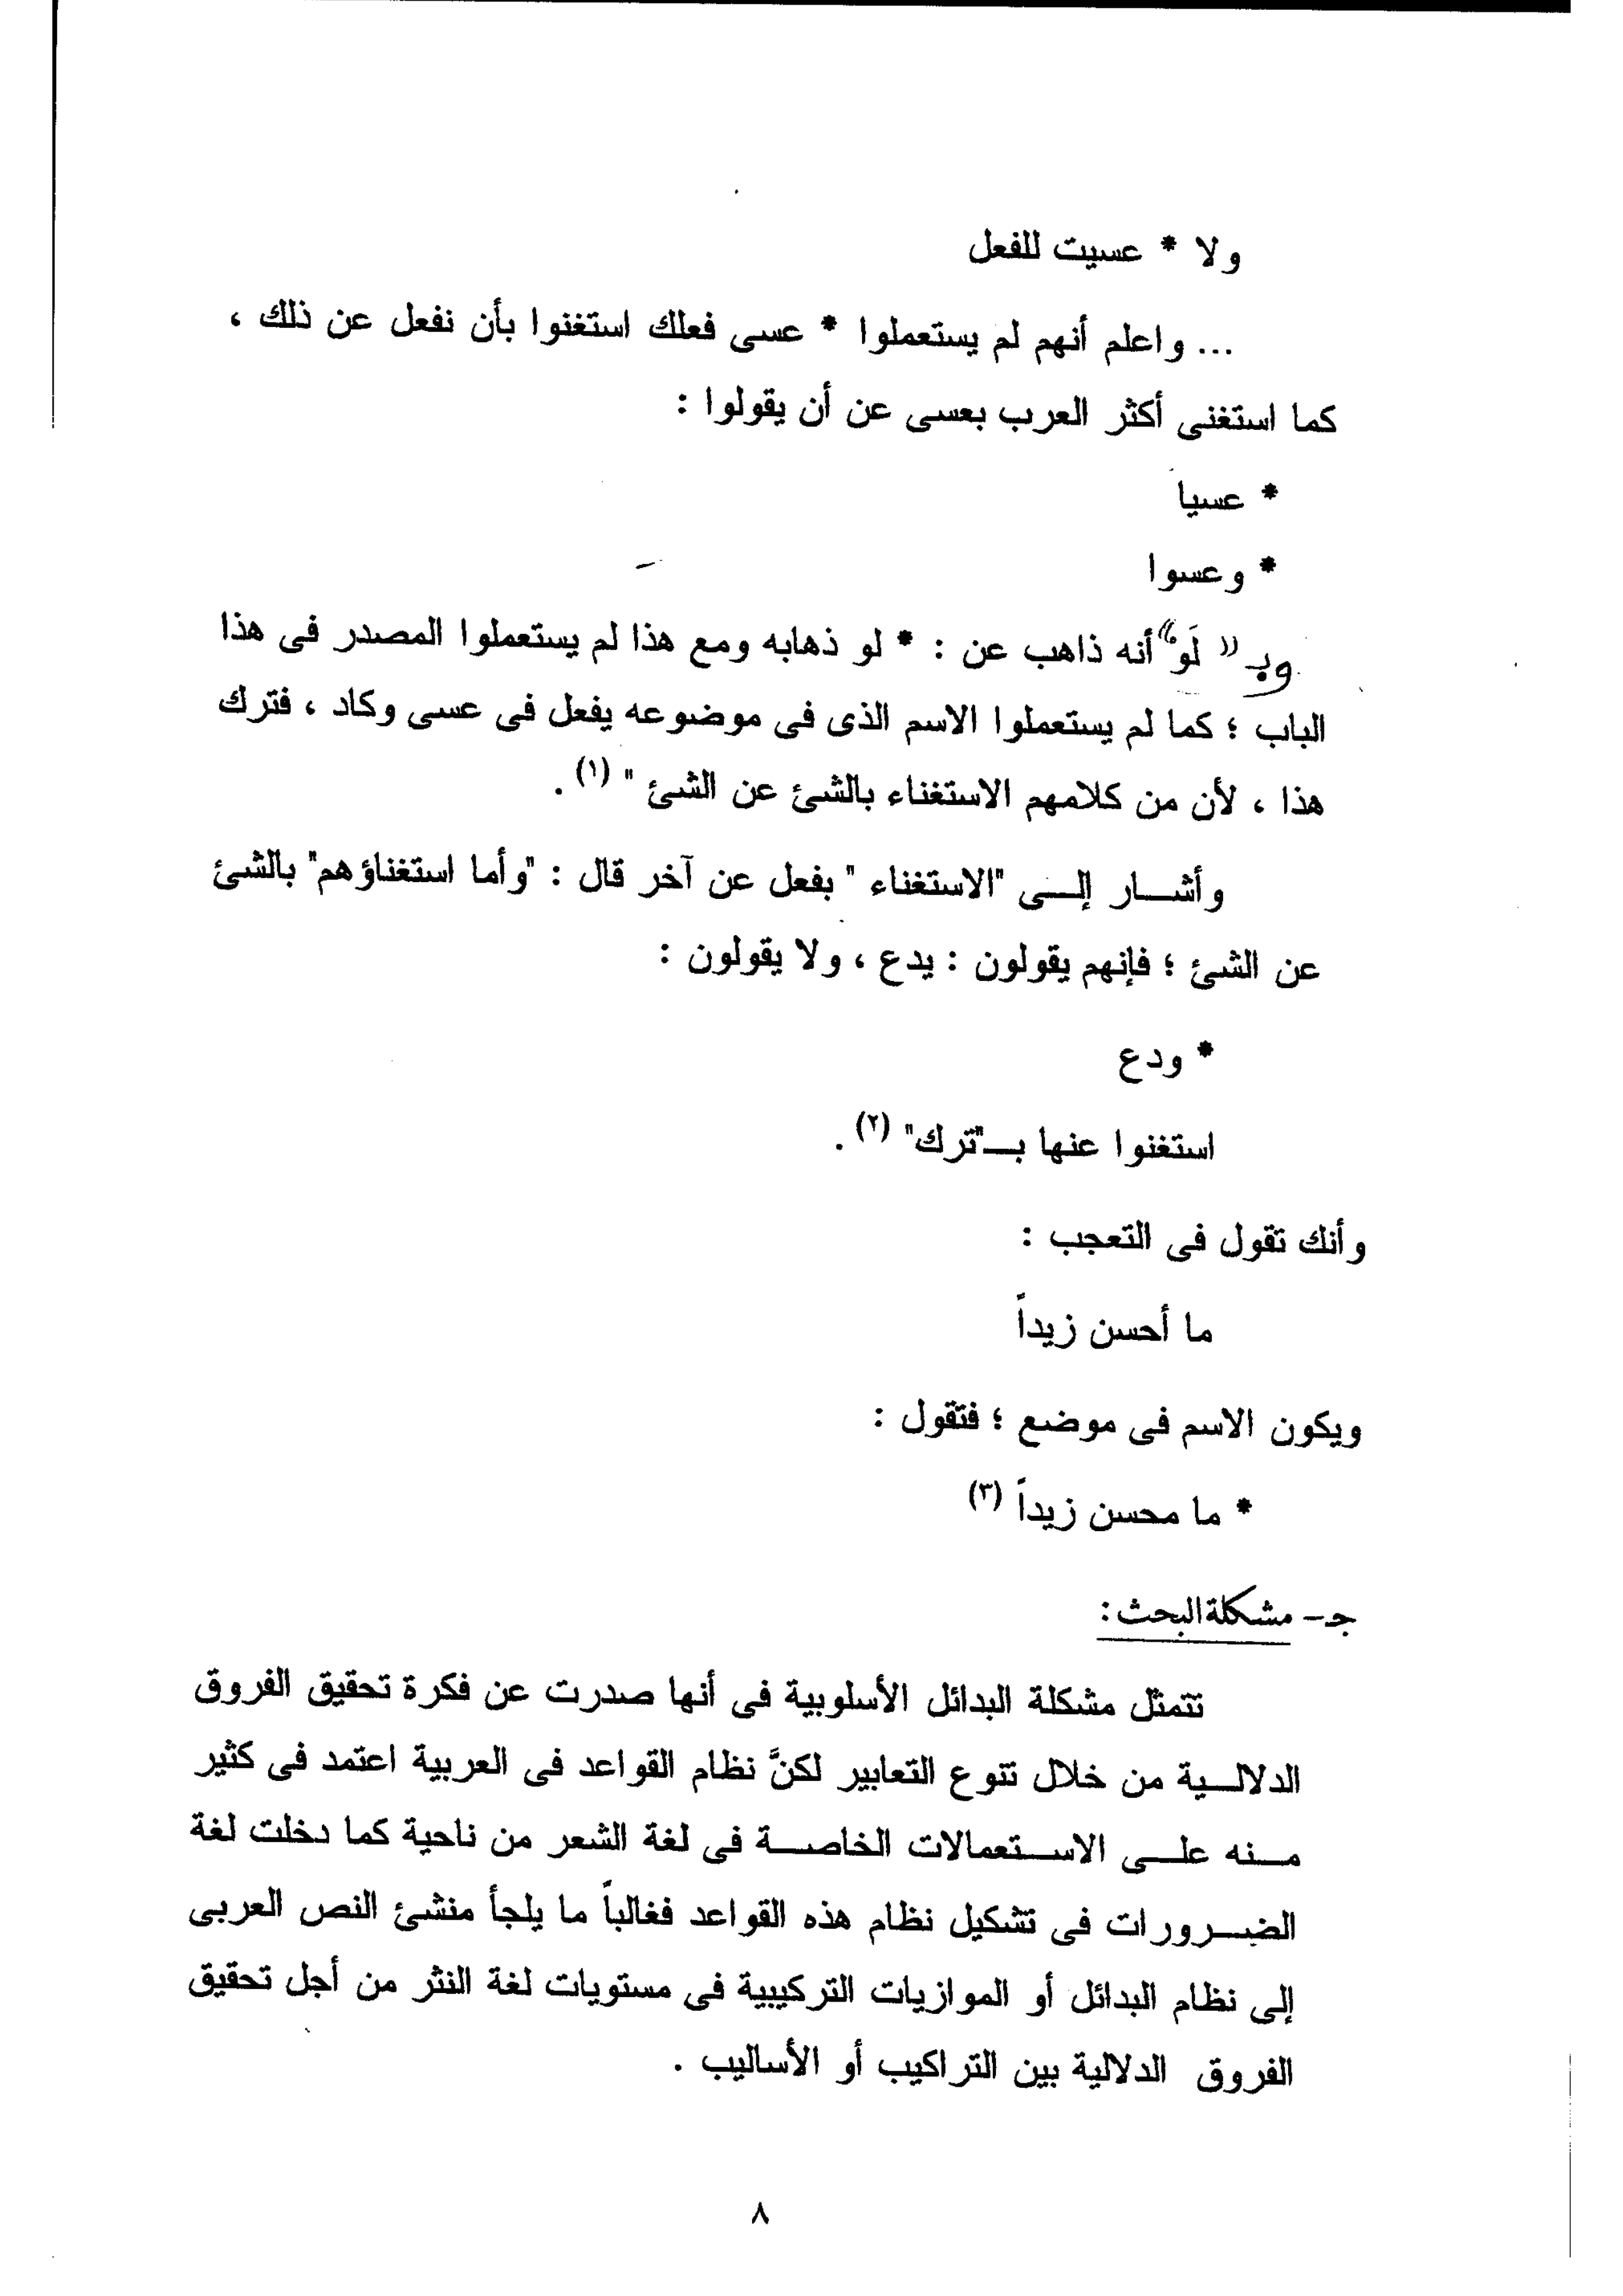 ولا * عسيت للفعل
... واعلم أنهم لم يستعملوا * عسى فعلك استغنوا بأن نفعل عن ذلك ،
كما استغنى أكثر العرب بعسى عن أن يقولوا :
* عسيا
* وعسوا
وبـ « لَو » أنه ذاهب عن : * لو ذهابه ومع هذا لم يستعملوا المصدر فى هذا
الباب ؛ كما لم يستعملوا الاسم الذى فى موضوعه يفعل فى عسى وكاد ، فترك
هذا ، لأن من كلامهم الاستغناء بالشئ عن الشئ " (١) .
وأشـــار إلـــى "الاستغناء " بفعل عن آخر قال : "وأما استغناؤهم" بالشئ
عن الشئ ؛ فإنهم يقولون : يدع ، ولا يقولون :
* ودع
استغنوا عنها بــ"ترك" (٢) .
وأنك تقول فى التعجب :
ما أحسن زيداً
ويكون الاسم فى موضع ؛ فتقول :
* ما محسن زيداً (٣)
جـ- مشكلة البحث :
تتمثل مشكلة البدائل الأسلوبية فى أنها صدرت عن فكرة تحقيق الفروق
الدلالـــية من خلال تنوع التعابير لكنَّ نظام القواعد فى العربية اعتمد فى كثير
مـــنه علـــى الاســـتعمالات الخاصـــة فى لغة الشعر من ناحية كما دخلت لغة
الضـــرورات فى تشكيل نظام هذه القواعد فغالباً ما يلجأ منشئ النص العربى
إلى نظام البدائل أو الموازيات التركيبية فى مستويات لغة النثر من أجل تحقيق
الفروق الدلالية بين التراكيب أو الأساليب .
٨